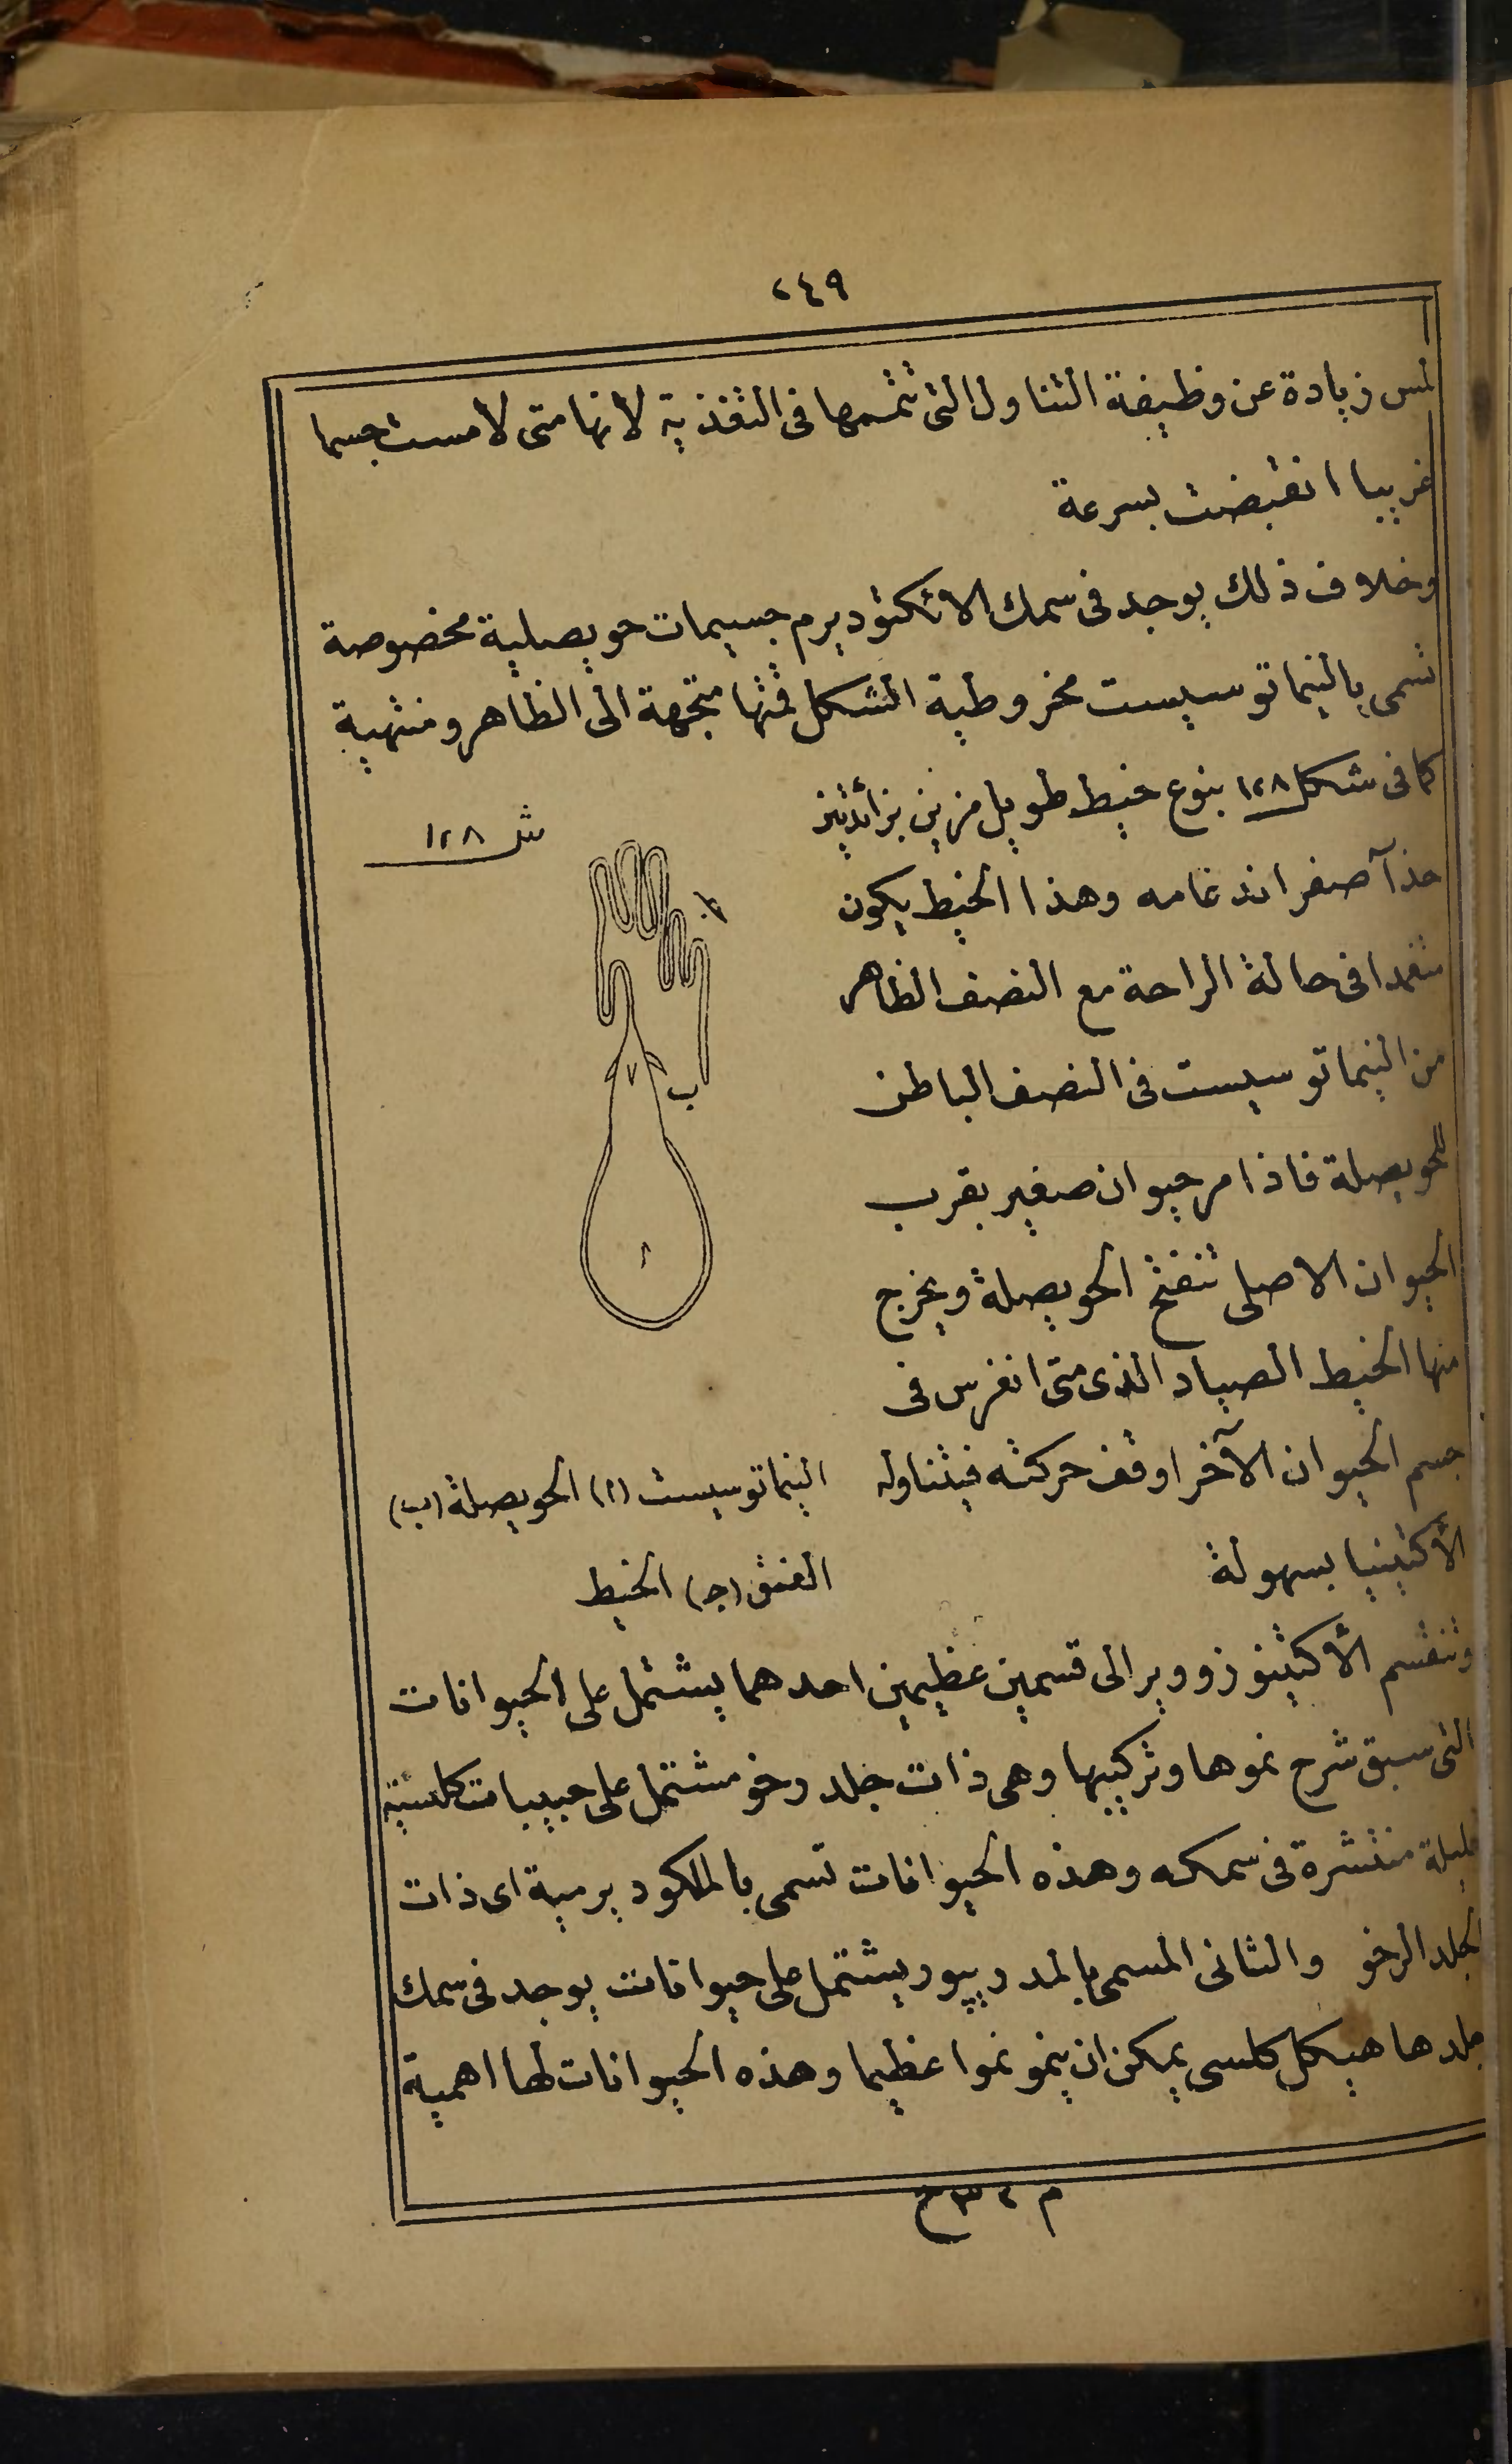 ٢٤٩
لمس زيادة عن وظيفة التناول التى تتممها فى التغذية لأنها متى لامست جسما
غريبا انقبضت بسرعة
وخلاف ذلك يوجد فى سمك الاتكتوديرم جسيمات حويصلية مخصوصة
تسمى بالنيماتوسيست مخروطية الشكل قمتها متجهة الى الظاهر ومنتهية
كما فى شكل ١٢٨ بنوع خيط طويل مزين بزائدتين
حذآ صغر اندغامه وهذا الخيط يكون
منغمدا فى حالة الراحة مع النصف الظاهر
من النيماتوسيست فى النصف الباطن
للحويصلة فاذا مر حيوان صغير بقرب
الحيوان الاصلى تنفتح الحويصلة ويخرج
منها الخيط الصياد الذى متى انغرس فى
جسم الحيوان الآخر اوقف حركته فيتناوله
الأكتينيا بسهولة
شكل ١٢٨
ب
ا
النيماتوسيست (ا) الحويصلة (ب)
العنق (ج) الخيط
وتنقسم الأكتينوزووير الى قسمين عظيمين احدهما يشتمل على الحيوانات
التى سبق شرح نموها وتركيبها وهى ذات جلد رخو مشتمل على حبيبات كلسية
قليلة منتشرة فى سمكه وهذه الحيوانات تسمى بالملكوديرمية اى ذات
الجلد الرخو والثانى المسمى بالمدريپور يشتمل على حيوانات يوجد فى سمك
جلدها هيكل كلسى يمكن ان ينمو نموا عظيما وهذه الحيوانات لها اهمية
م ٣٢ ح